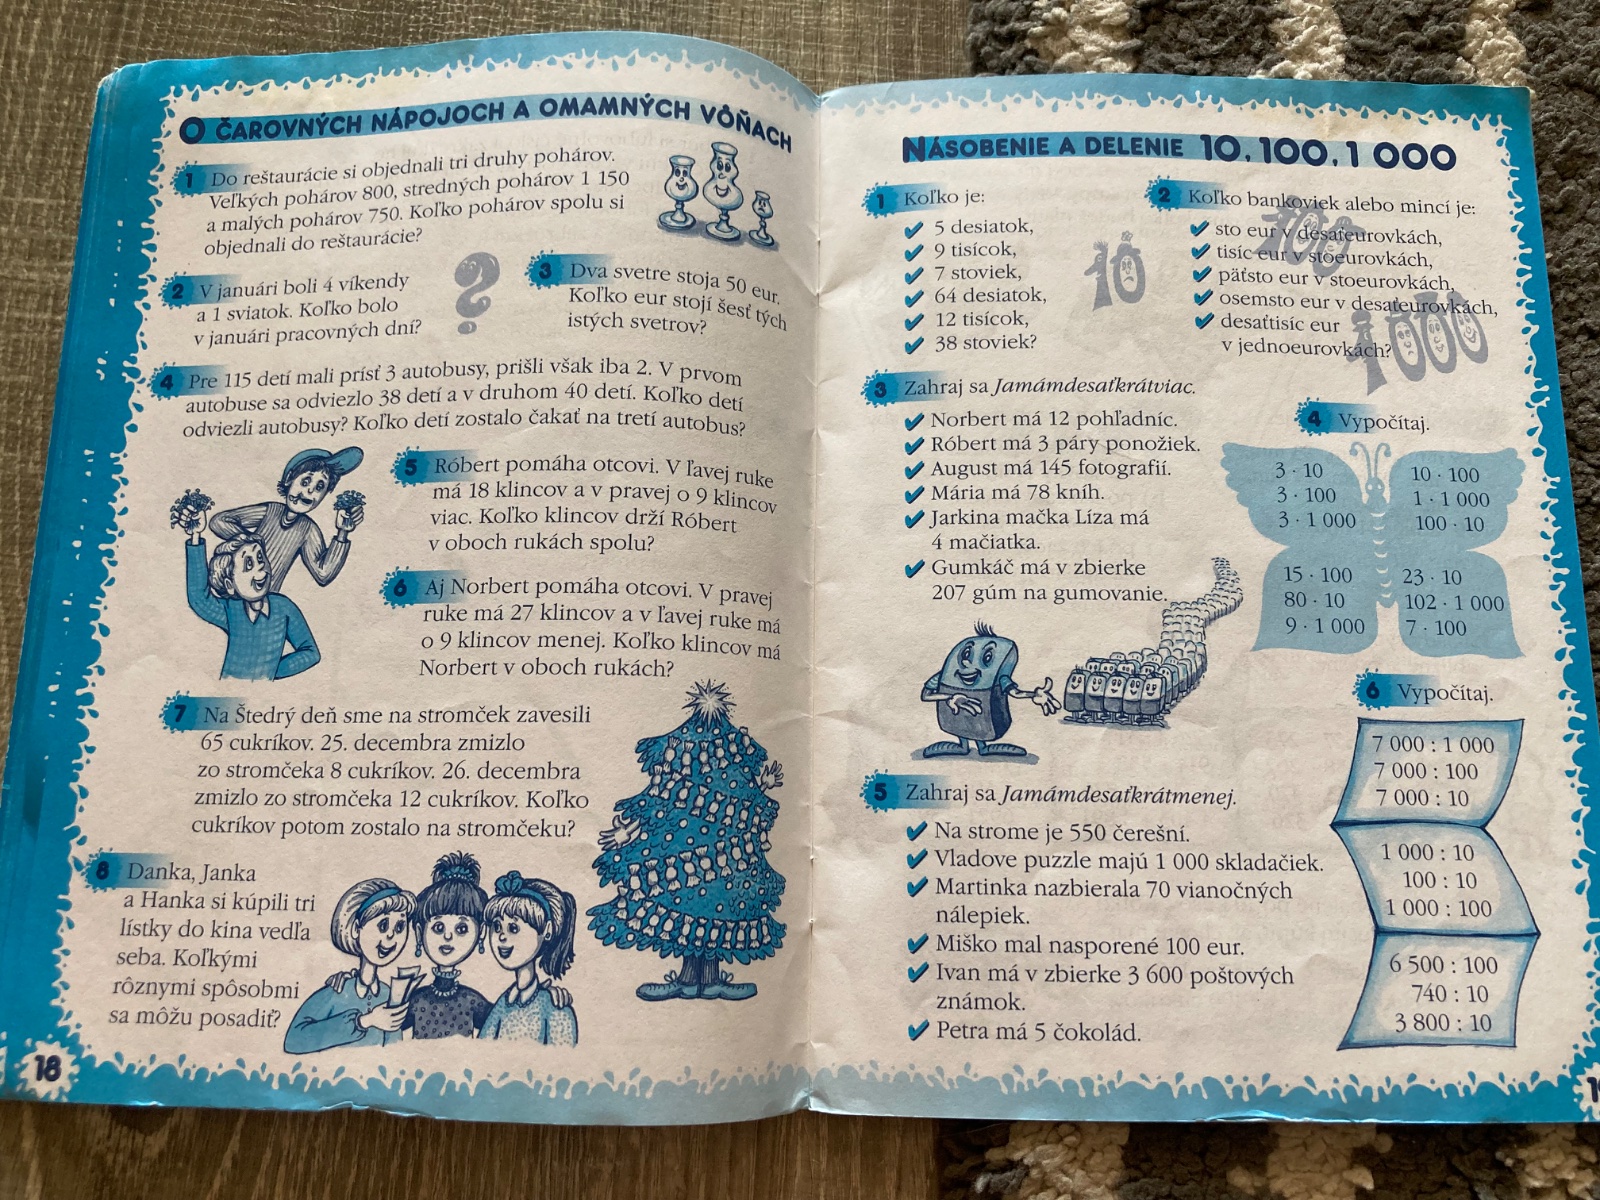 O ČAROVNÝCH NÁPOJOCH A OMAMNÝCH VÔŇACH
1 Do reštaurácie si objednali tri druhy pohárov.
Veľkých pohárov 800, stredných pohárov 1 150
a malých pohárov 750. Koľko pohárov spolu si
objednali do reštaurácie?
2 V januári boli 4 víkendy
a 1 sviatok. Koľko bolo
v januári pracovných dní?
?
3 Dva svetre stoja 50 eur.
Koľko eur stojí šesť tých
istých svetrov?
4 Pre 115 detí mali prísť 3 autobusy, prišli však iba 2. V prvom
autobuse sa odviezlo 38 detí a v druhom 40 detí. Koľko detí
odviezli autobusy? Koľko detí zostalo čakať na tretí autobus?
5 Róbert pomáha otcovi. V ľavej ruke
má 18 klincov a v pravej o 9 klincov
viac. Koľko klincov drží Róbert
v oboch rukách spolu?
6 Aj Norbert pomáha otcovi. V pravej
ruke má 27 klincov a v ľavej ruke má
o 9 klincov menej. Koľko klincov má
Norbert v oboch rukách?
7 Na Štedrý deň sme na stromček zavesili
65 cukríkov. 25. decembra zmizlo
zo stromčeka 8 cukríkov. 26. decembra
zmizlo zo stromčeka 12 cukríkov. Koľko
cukríkov potom zostalo na stromčeku?
8 Danka, Janka
a Hanka si kúpili tri
lístky do kina vedľa
seba. Koľkými
rôznymi spôsobmi
sa môžu posadiť?
18
NÁSOBENIE A DELENIE 10, 100, 1 000
1 Koľko je:
✔ 5 desiatok,
✔ 9 tisícok,
✔ 7 stoviek,
✔ 64 desiatok,
✔ 12 tisícok,
✔ 38 stoviek?
10
2 Koľko bankoviek alebo mincí je:
✔ sto eur v desaťeurovkách,
✔ tisíc eur v stoeurovkách,
✔ päťsto eur v stoeurovkách,
✔ osemsto eur v desaťeurovkách,
✔ desaťtisíc eur
v jednoeurovkách?
100
1000
3 Zahraj sa Jamámdesaťkrátviac.
✔ Norbert má 12 pohľadníc.
✔ Róbert má 3 páry ponožiek.
✔ August má 145 fotografií.
✔ Mária má 78 kníh.
✔ Jarkina mačka Líza má
4 mačiatka.
✔ Gumkáč má v zbierke
207 gúm na gumovanie.
4 Vypočítaj.
3 · 10
3 · 100
3 · 1 000
10 · 100
1 · 1 000
100 · 10
15 · 100
80 · 10
9 · 1 000
23 · 10
102 · 1 000
7 · 100
5 Zahraj sa Jamámdesaťkrátmenej.
✔ Na strome je 550 čerešní.
✔ Vladove puzzle majú 1 000 skladačiek.
✔ Martinka nazbierala 70 vianočných
nálepiek.
✔ Miško mal nasporené 100 eur.
✔ Ivan má v zbierke 3 600 poštových
známok.
✔ Petra má 5 čokolád.
6 Vypočítaj.
7 000 : 1 000
7 000 : 100
7 000 : 10
1 000 : 10
100 : 10
1 000 : 100
6 500 : 100
740 : 10
3 800 : 10